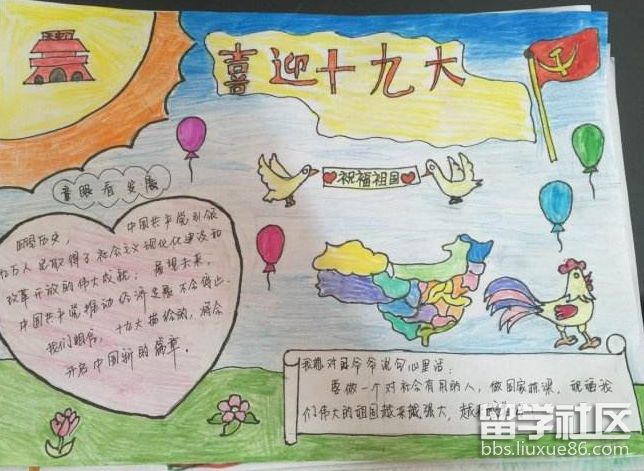 喜迎十九大
祝福祖国
童眼看发展
回顾历史, 中国共产党引领
亿万人民取得了社会主义现代化建设和
改革开放的伟大成就; 展望未来,
中国共产党推动经济发展不会停止.
我们期待, 十九大描绘的,
开启中国新的篇章.
我想对习爷爷说句心里话:
要做一个对社会有用的人, 做国家栋梁, 祝福我
们伟大的祖国越来越强大, 越来
留学社区
bbs.liuxue86.com